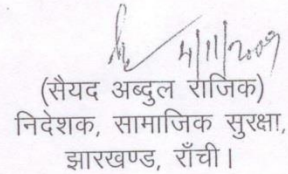 4/11/2009
(सैयद अब्दुल राजिक)
निदेशक, सामाजिक सुरक्षा,
झारखण्ड, राँची।